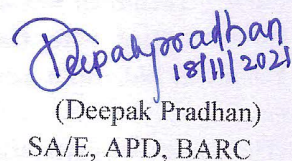 Deepakpradhan
18/11/2021
(Deepak Pradhan)
SA/E, APD, BARC